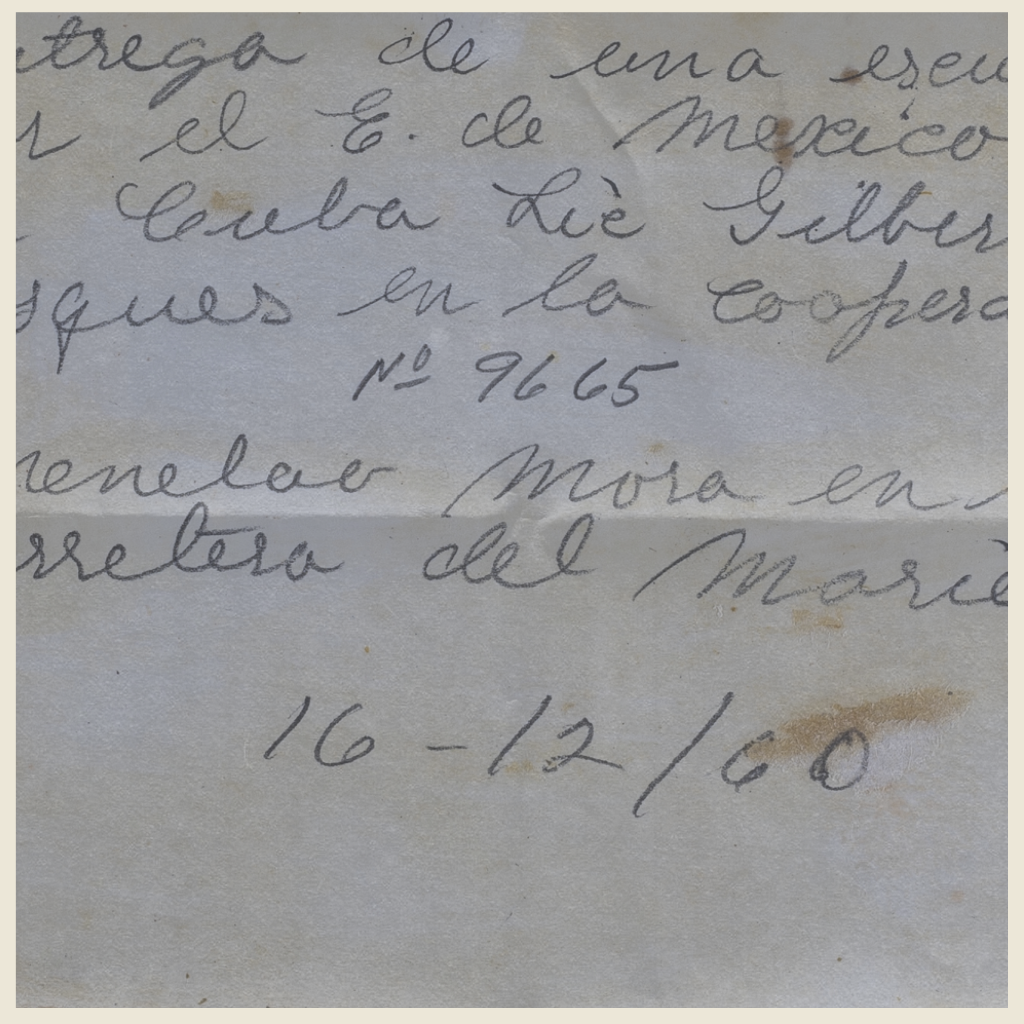 trega de una escu
r el E. de Mexico
Cuba Lic Gilber
sques en la coopera
Nº 9665
enelao Mora en
rretera del Marie
16-12/60